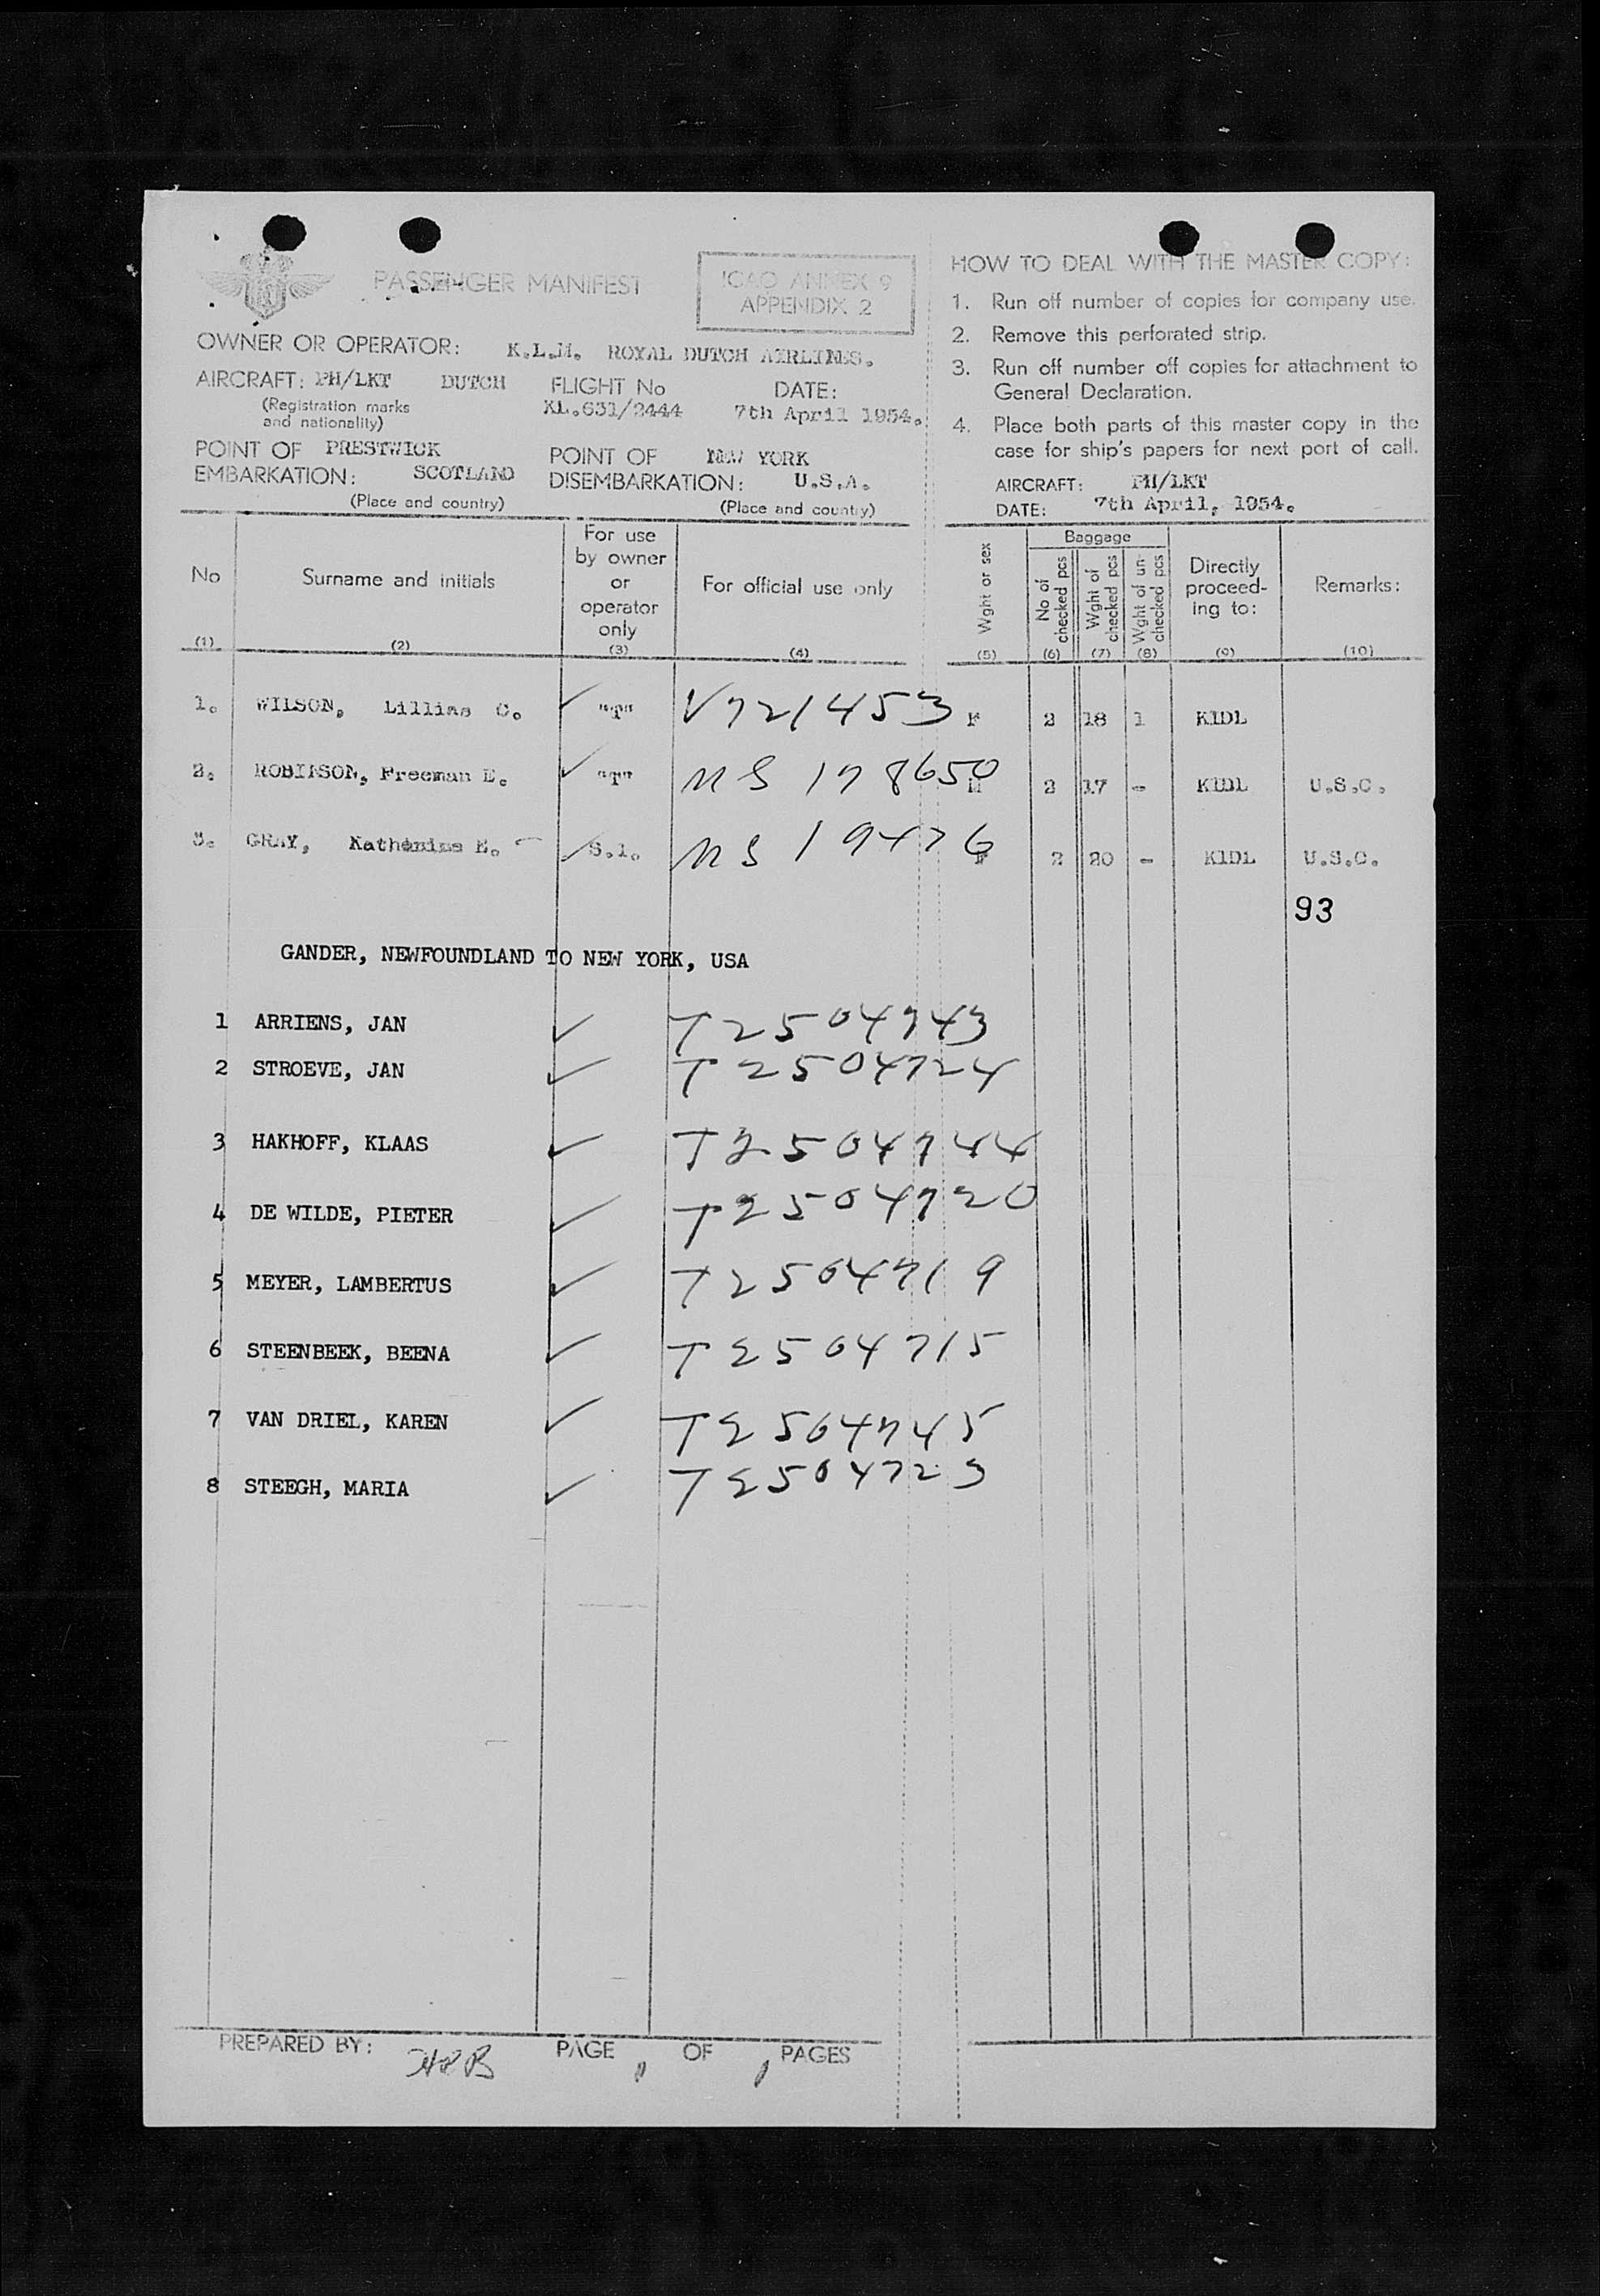 PASSENGER MANIFEST
ICAO ANNEX 9
APPENDIX 2
OWNER OR OPERATOR: K.L.M. ROYAL DUTCH AIRLINES.
AIRCRAFT: PH/LKT DUTCH FLIGHT No DATE:
(Registration marks KL.631/2444 7th April 1954.
and nationality)
POINT OF PRESTWICK POINT OF NEW YORK
EMBARKATION: SCOTLAND DISEMBARKATION: U.S.A.
(Place and country) (Place and country)
HOW TO DEAL WITH THE MASTER COPY:
1. Run off number of copies for company use.
2. Remove this perforated strip.
3. Run off number off copies for attachment to
General Declaration.
4. Place both parts of this master copy in the
case for ship's papers for next port of call.
AIRCRAFT: PH/LKT
DATE: 7th April, 1954.
No
(1)
Surname and initials
(2)
For use
by owner
or
operator
only
(3)
For official use only
(4)
Wght or sex
(5)
Baggage
No of
checked pcs
(6)
Wght of
checked pcs
(7)
Wght of un-
checked pcs
(8)
Directly
proceed-
ing to:
(9)
Remarks:
(10)
1. WILSON, Lillias C. "T" V721453 F 2 18 1 KIDL
2. ROBINSON, Freeman E. "T" MS 178650 M 2 17 - KIDL U.S.C.
3. GRAY, Kathenine E. S.1. MS 19476 F 2 20 - KIDL U.S.C.
93
GANDER, NEWFOUNDLAND TO NEW YORK, USA
1 ARRIENS, JAN T2504743
2 STROEVE, JAN T2504724
3 HAKHOFF, KLAAS T2504744
4 DE WILDE, PIETER T2504720
5 MEYER, LAMBERTUS T2504719
6 STEENBEEK, BEENA T2504715
7 VAN DRIEL, KAREN T2504745
8 STEEGH, MARIA T2504723
PREPARED BY: PAGE 1 OF 1 PAGES